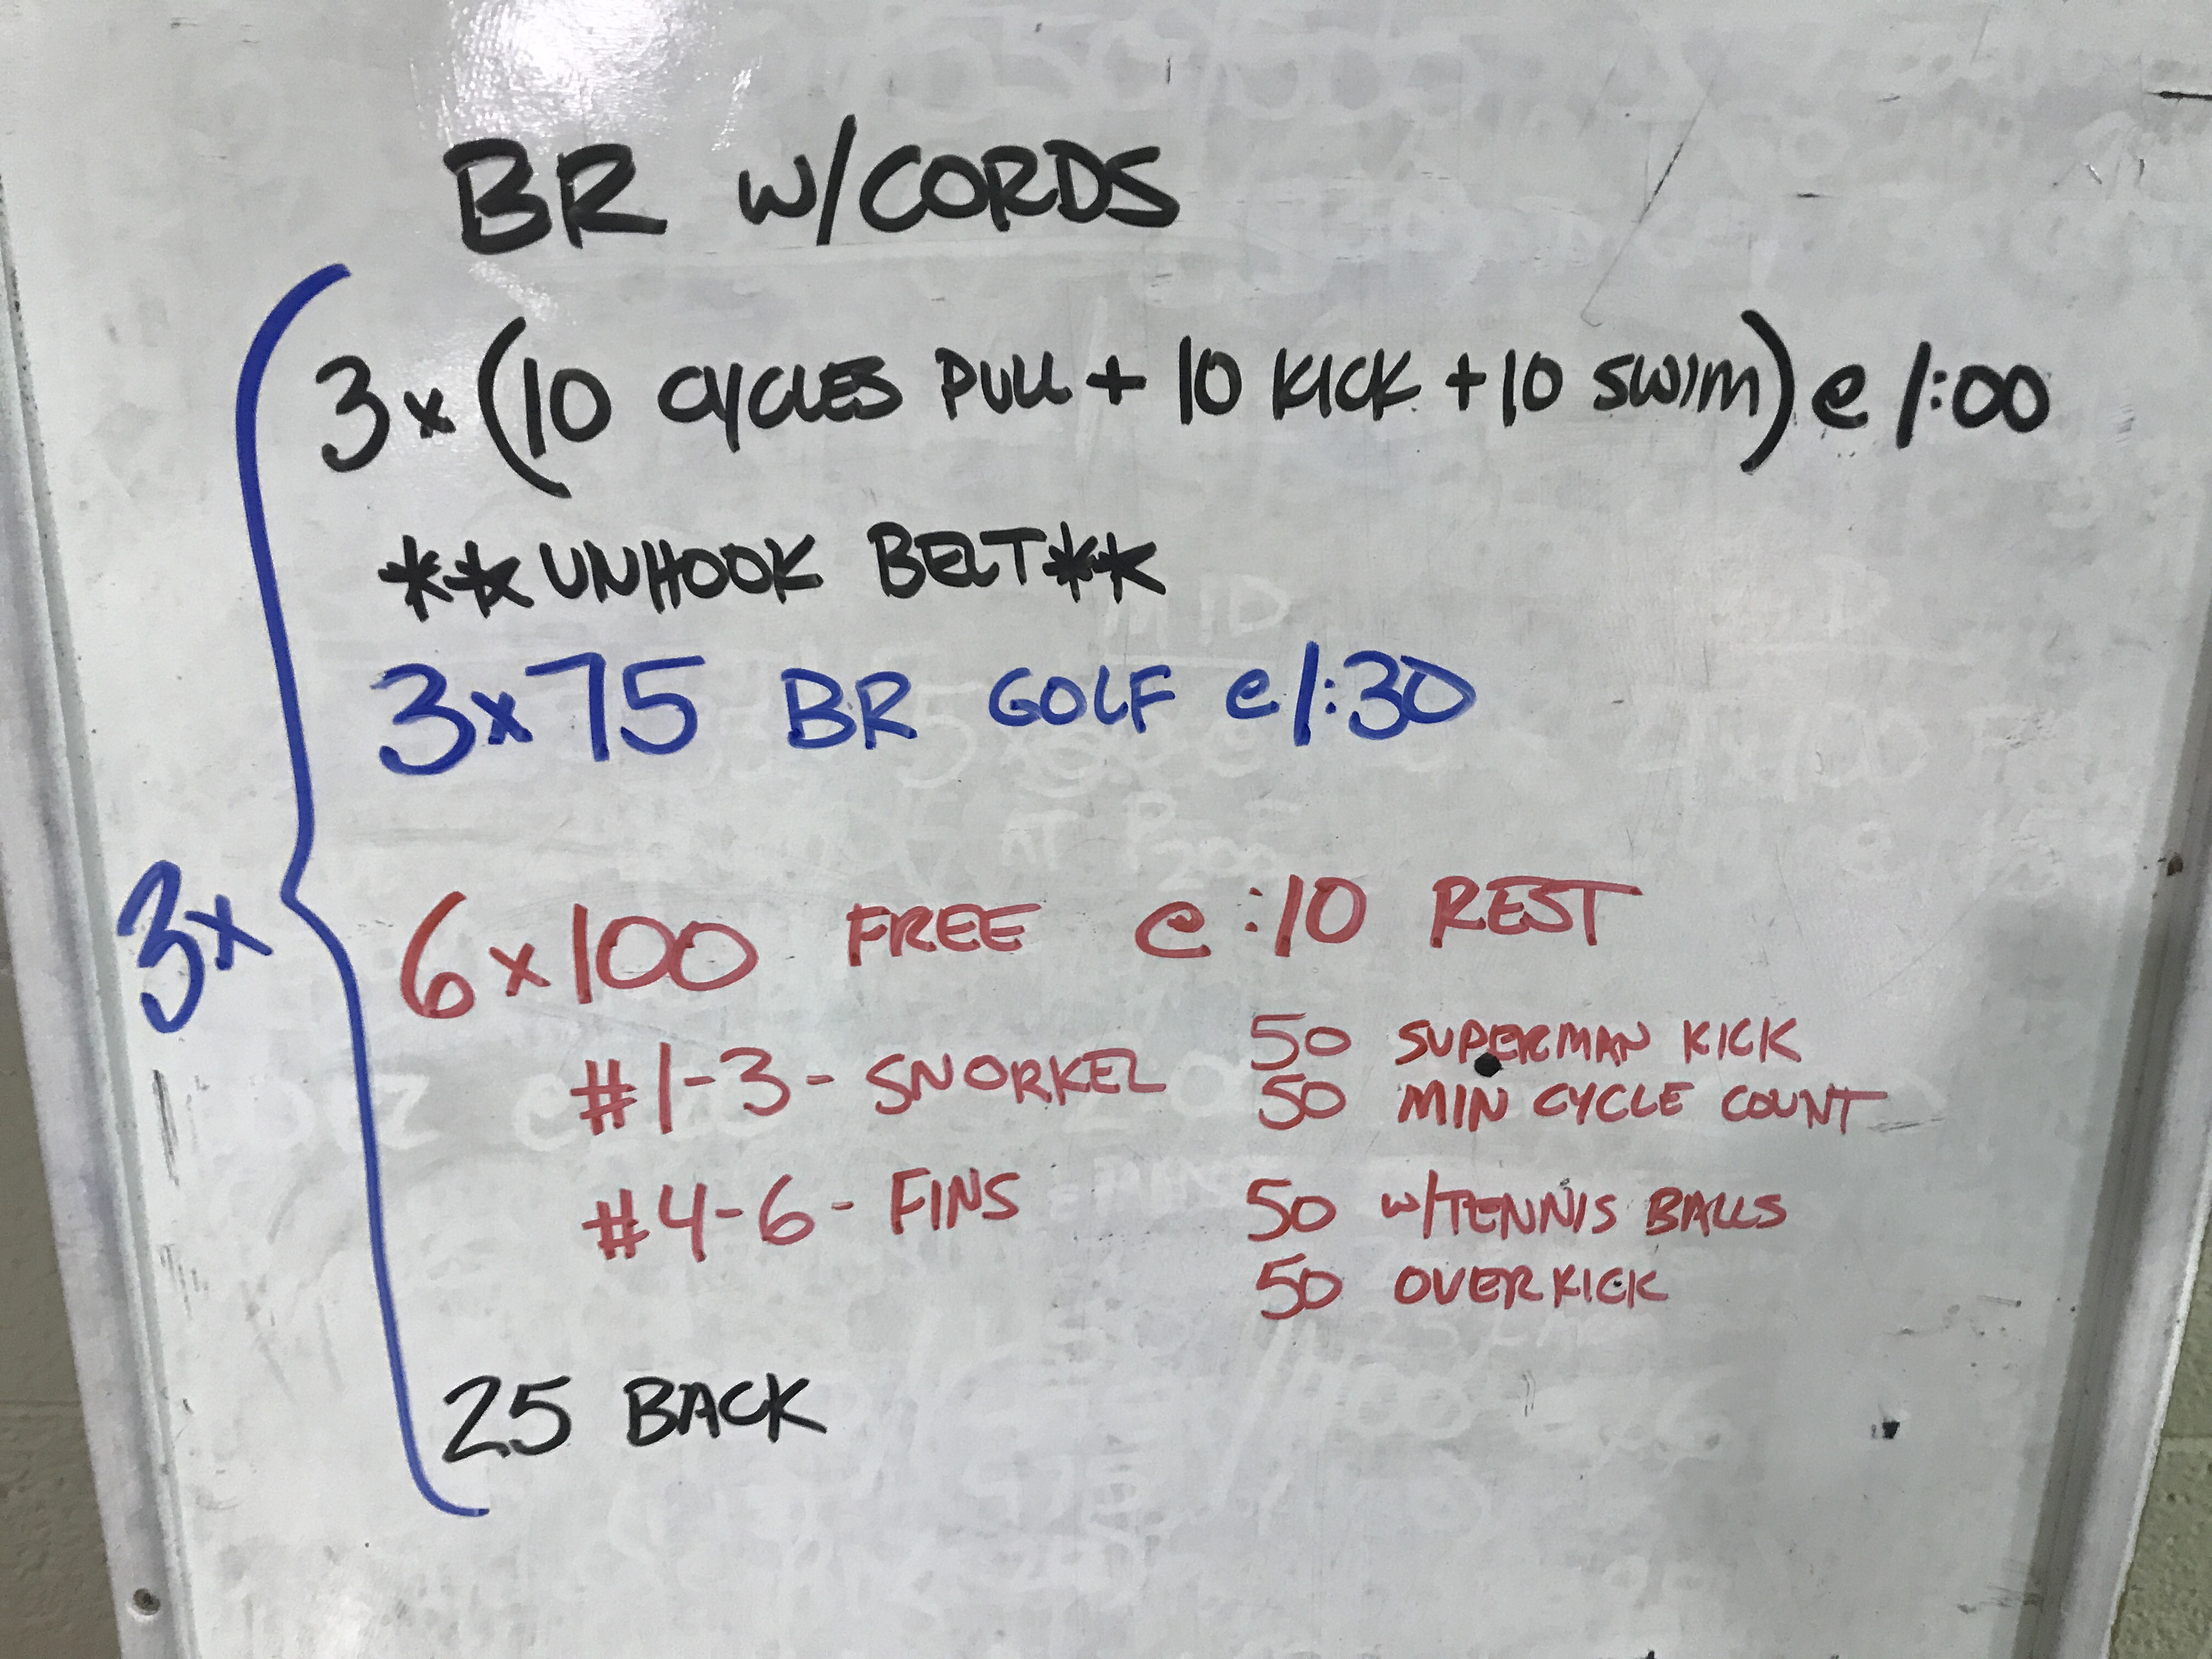 BR W/CORDS
3x (10 CYCLES PULL + 10 KICK + 10 SWIM) @ 1:00
**UNHOOK BELT**
3x75 BR GOLF @ 1:30
3x
6x100 FREE @ :10 REST
#1-3- SNORKEL 50 SUPERMAN KICK
50 MIN CYCLE COUNT
#4-6- FINS 50 W/TENNIS BALLS
50 OVERKICK
25 BACK